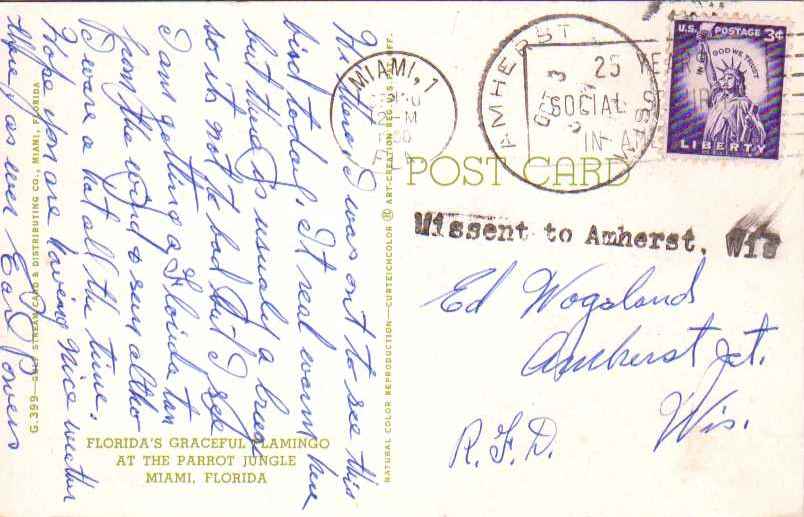 Hi there, I was out to see this
bird today. It real warm here
but there is usually a breeze
so its not to bad but I see
I am getting a Florida tan
from the wind & sun altho
I ware a hat all the time.
Hope you are having nice weather
there as ever Earl Powers
G.399—GULF STREAM CARD & DISTRIBUTING CO., MIAMI, FLORIDA
FLORIDA'S GRACEFUL FLAMINGO
AT THE PARROT JUNGLE
MIAMI, FLORIDA
NATURAL COLOR REPRODUCTION—CURTEICHCOLOR ® ART-CREATION REG. U.S. PAT. OFF.
POST CARD
MIAMI, 1
AMHERST
OCT 3
WISC
25
SOCIAL
IN A
U.S. POSTAGE 3¢
IN GOD WE TRUST
LIBERTY
Missent to Amherst, Wis
Ed Wogsland
Amherst Jct.
Wis.
R.F.D.